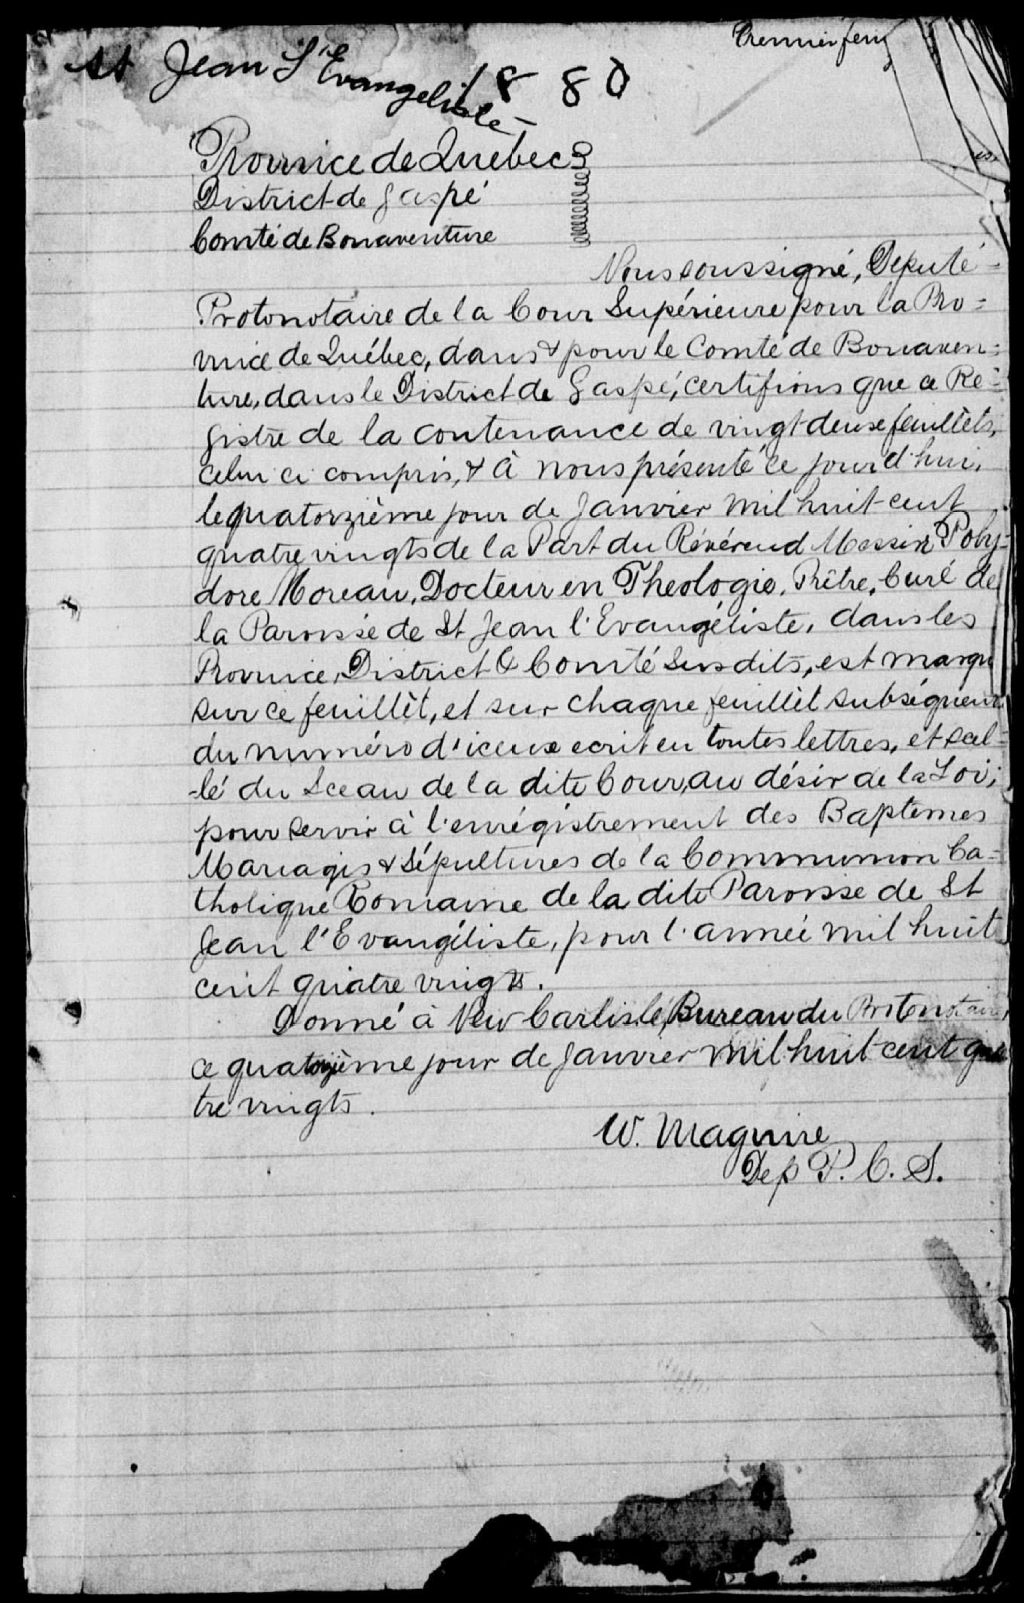 Premier feu
St Jean L'Evangeliste – 1880
Province de Québec
District de Gaspé
Comté de Bonaventure
Nous soussigné, Deputé =
Protonotaire de la Cour Supérieure pour la Pro =
vince de Québec, dans & pour le Comté de Bonaven =
ture, dans le District de Gaspé, certifions que ce Re =
gistre de la contenance de vingt deux feuillets,
celui ci compris, & à nous présenté ce jour d'hui,
le quatorzième jour de Janvier mil huit cent
quatre vingts de la Part du Révérend Messire Poly =
dore Moreau, Docteur en Theologie, Prêtre, Curé de
la Paroisse de St Jean l'Evangéliste, dans les
Province, District & Comté Susdits, est marqu
sur ce feuillèt, et sur chaque feuillèt subséquent
du numéro d'iceux ecrit en toutes lettres, et scel =
-lé du Sceau de la dite Cour, au désir de la Loi;
pour servir à l'enrégistrement des Baptemes
Mariages & Sépultures de la Communion Ca =
tholique Romaine de la dite Paroisse de St
Jean l'Evangéliste, pour l'année mil huit
cent quatre vingts.
Donné à New Carlisle, Bureau du Protonotaire,
ce quatorzième jour de Janvier mil huit cent qua
tre vingts.
W. Maguire
Dep P. C. S.